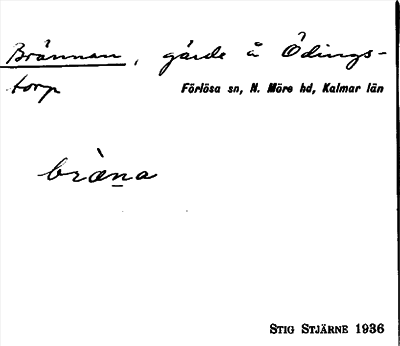 Brännan, gärde å Ödings-
torp
Förlösa sn, N. Möre hd, Kalmar län
bràna
STIG STJÄRNE 1936